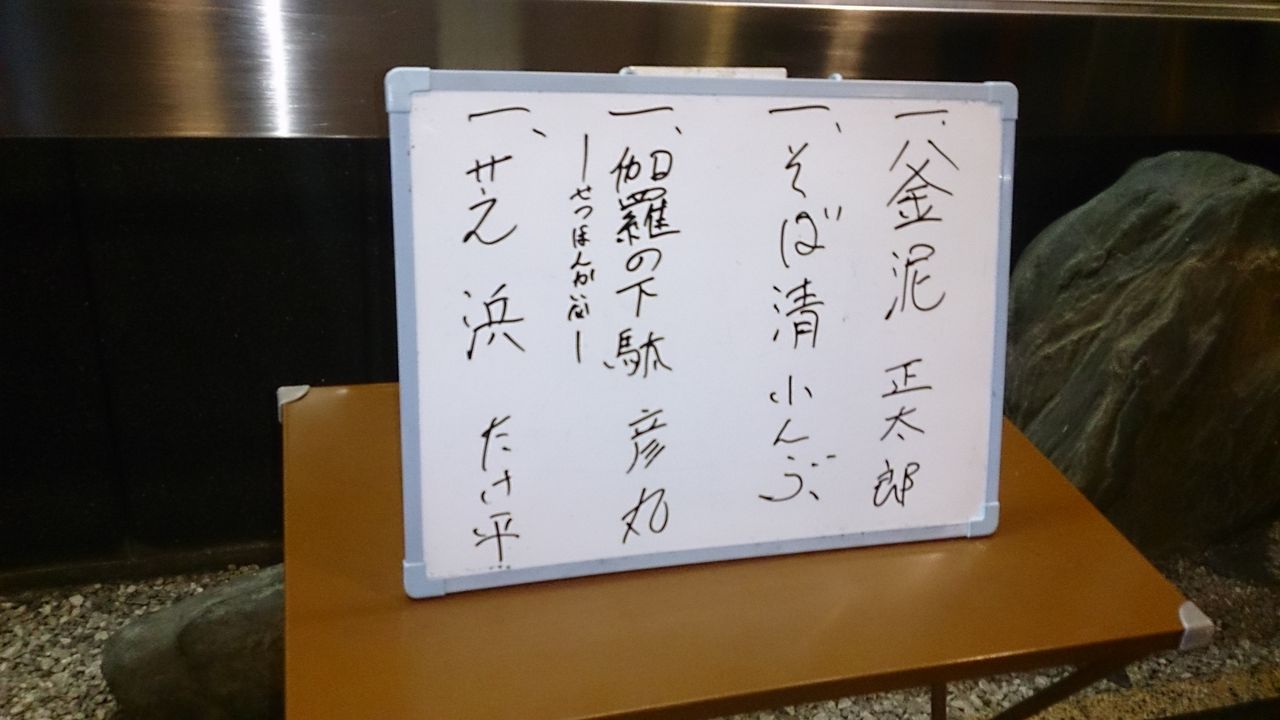 一、釜泥 正太郎
一、そば清 小んぶ
一、伽羅の下駄 彦丸
ーせつほんかいなー
一、芝浜 たけ平